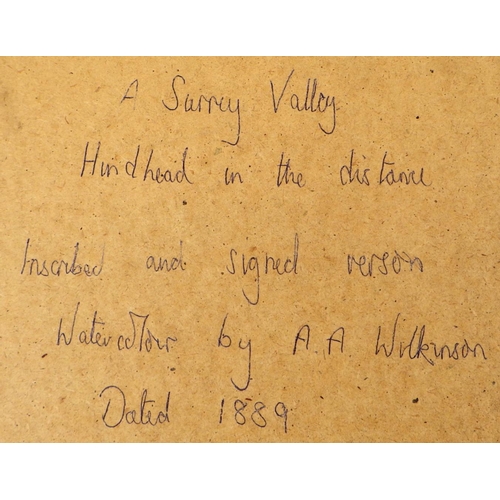 A Surrey Valley
Hindhead in the distance
Inscribed and signed verson
Watercolour by A A Wilkinson
Dated 1889